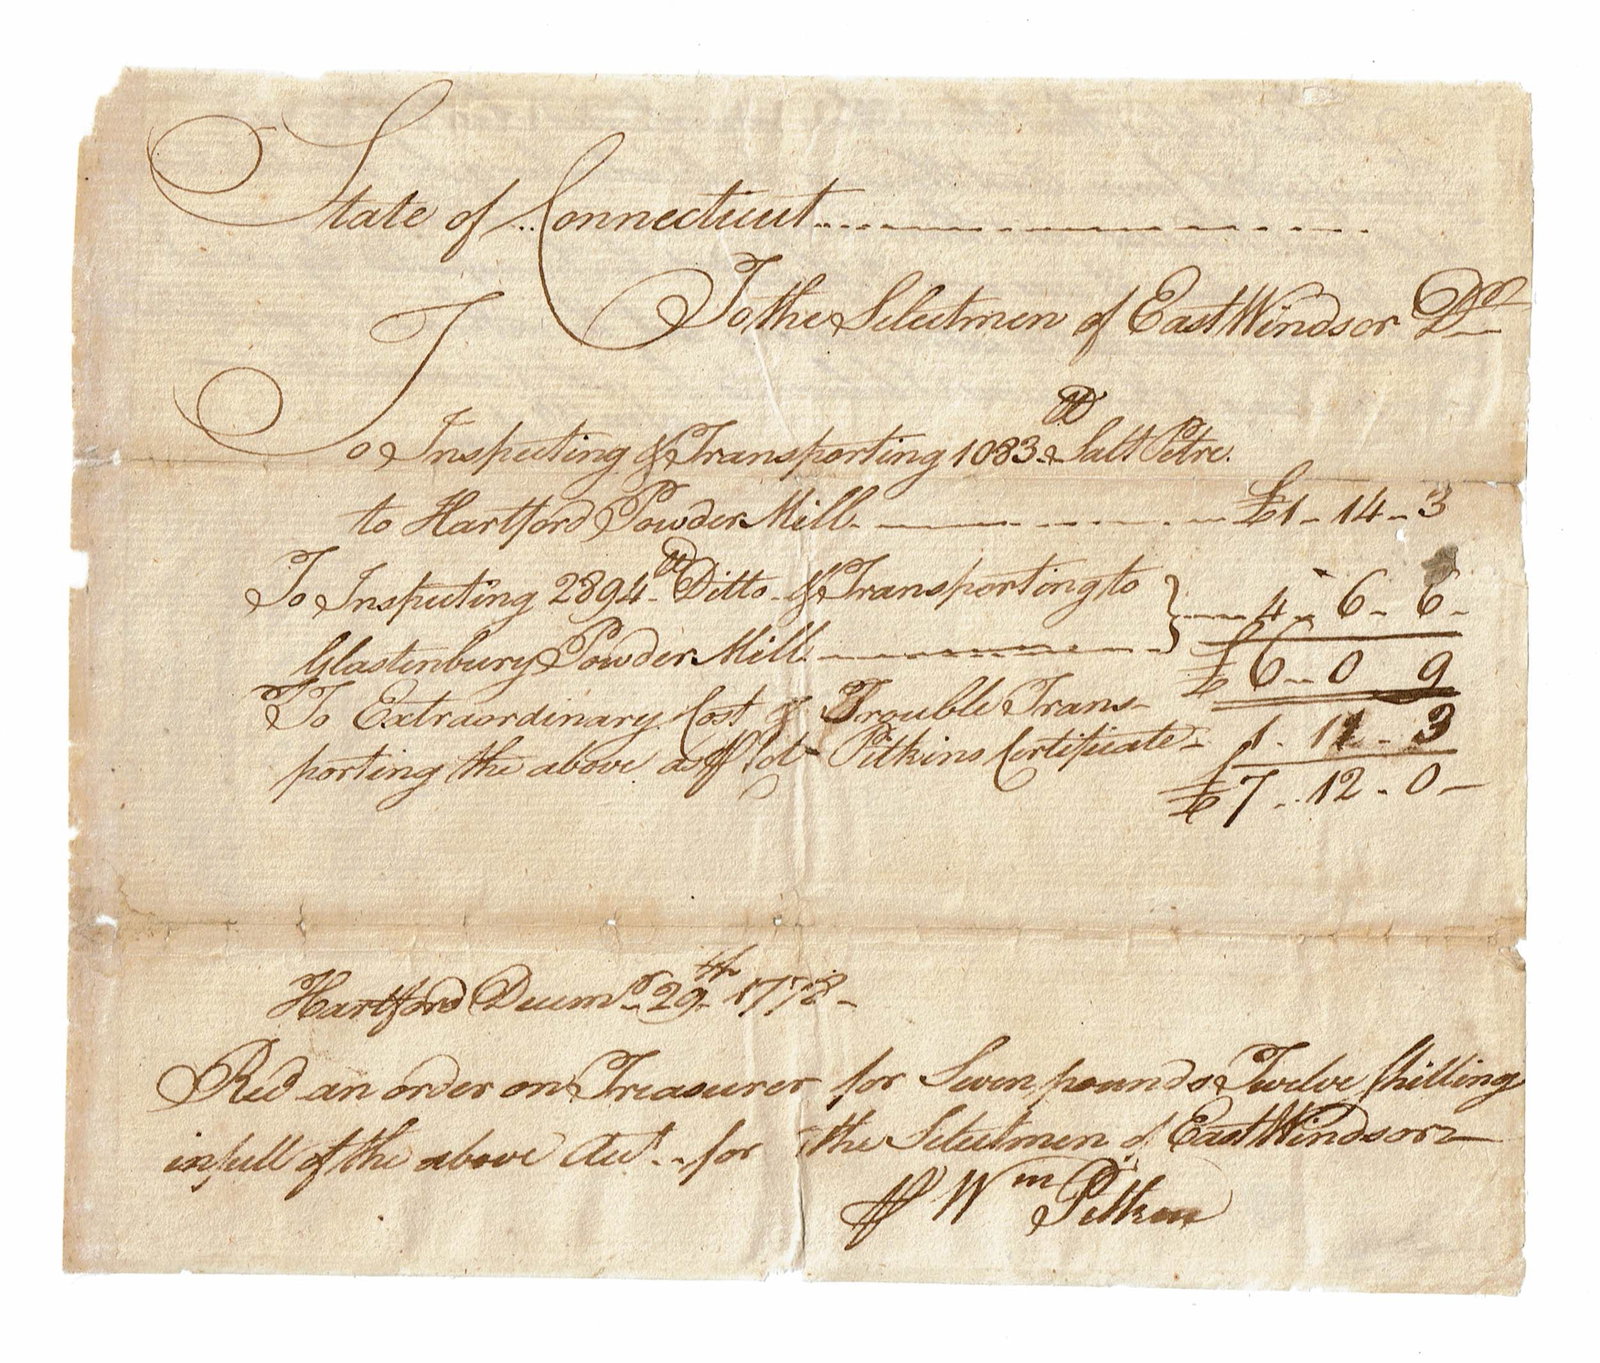 State of Connecticut
To the Selectmen of East Windsor Dr
To Inspecting & Transporting 1083 lb Salt Petre
to Hartford Powder Mill £1 - 14 - 3
To Inspecting 2894 lb Ditto & Transporting to } 4 - 6 - 6
Glastenbury Powder Mill £6 - 0 9
To Extraordinary Cost & Trouble Trans-
porting the above as pr Col Pitkins Certificate 1 - 11 - 3
£7 - 12 - 0
Hartford Decemr 29th 1778
Recd an order on Treasurer for Seven pounds Twelve Shilling
in full of the above Acct for the Selectmen of East Windsor
pr Wm Pitkin